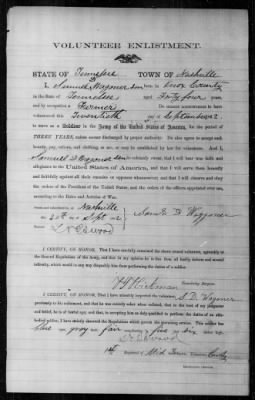 VOLUNTEER ENLISTMENT.
STATE OF Tennessee TOWN OF Nashville
I, Samuel D Wagoner born in Knox County
in the State of Tennessee aged Forty four years,
and by occupation a Farmer Do HEREBY ACKNOWLEDGE to have
volunteered this Twentieth day of September 1862
to serve as a Soldier in the Army of the United States of America, for the period of
THREE YEARS, unless sooner discharged by proper authority: Do also agree to accept such
bounty, pay, rations, and clothing, as are, or may be, established by law for volunteers. And I,
Samuel D Wagoner do solemnly swear, that I will bear true faith and
allegiance to the United States of America, and that I will serve them honestly
and faithfully against all their enemies or opposers whomsoever; and that I will observe and obey
the orders of the President of the United States, and the orders of the officers appointed over me,
according to the Rules and Articles of War.
Nashville
20th Sept 62
Samuel D Wagoner
I CERTIFY, ON HONOR, That I have carefully examined the above named volunteer, agreeably to the
General Regulations of the Army, and that in my opinion he is free from all bodily defects and mental
infirmity, which would in any way disqualify him from performing the duties of a soldier.
Hickman
Examining Surgeon.
I CERTIFY, ON HONOR, That I have minutely inspected the volunteer, S. D. Wagoner
previously to his enlistment, and that he was entirely sober when enlisted; that, to the best of my judgment
and belief, he is of lawful age; and that, in accepting him as duly qualified to perform the duties of an able-
bodied soldier, I have strictly observed the Regulations which govern the recruiting service. This soldier has
blue eyes, gray hair, fair complexion, is five feet six inches high.
1st Regiment of Mid Tenn Volunteers Cavalry
RECRUITING OFFICER.